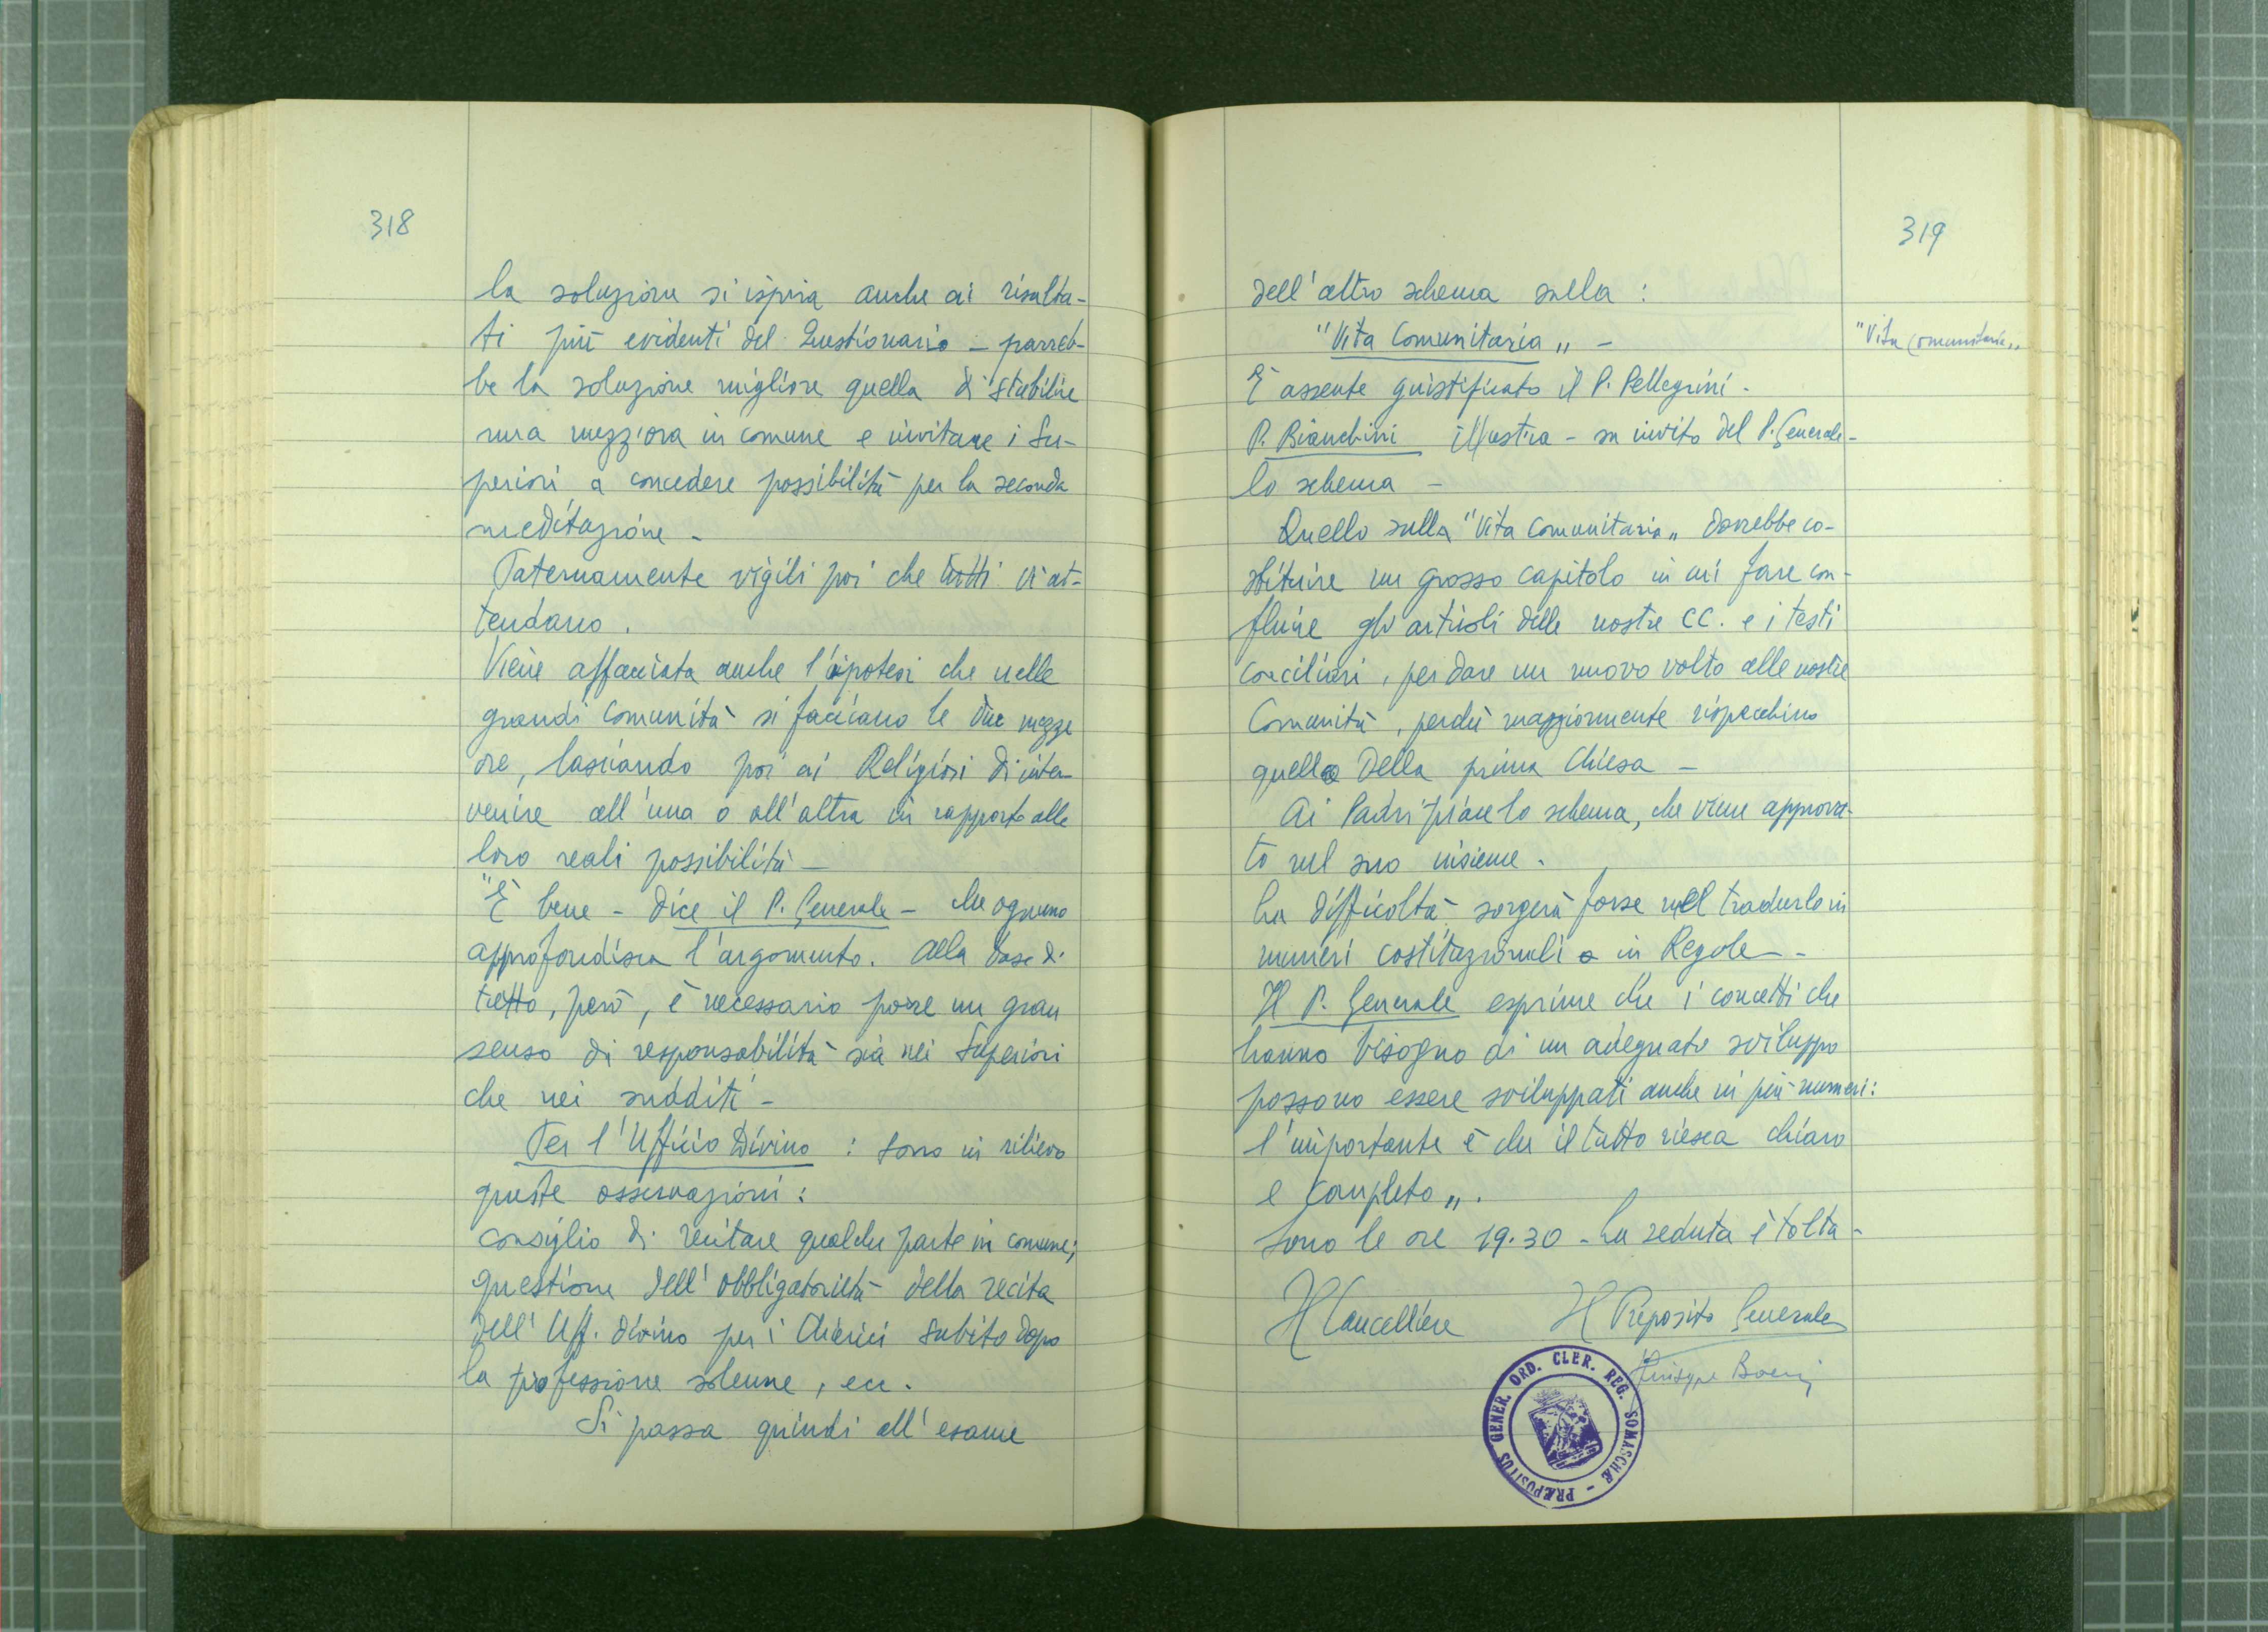 318
la soluzione si ispira anche ai risulta-
ti più evidenti del Questionario - parreb-
be la soluzione migliore quella di stabilire
una mezz'ora in comune e invitare i Su-
periori a concedere possibilità per la seconda
meditazione -
Paternamente vigili poi che tutti vi at-
tendano.
Viene affacciata anche l'ipotesi che nelle
grandi comunità si facciano le due mezze
ore, lasciando poi ai Religiosi di inter-
venire all'una o all'altra in rapporto alle
loro reali possibilità -
"È bene - dice il P. Generale - che ognuno
approfondisca l'argomento. Alla base di
tutto, però, è necessario porre un gran
senso di responsabilità sia nei Superiori
che nei sudditi -
Per l'Ufficio Divino : Sono in rilievo
queste osservazioni:
consiglio di recitare qualche parte in comune;
questione dell'obbligatorietà della recita
dell'Uff. divino per i Chierici subito dopo
la professione solenne, ecc.
Si passa quindi all'esame
319
dell'altro schema sulla :
"Vita Comunitaria" -
"Vita Comunitaria"
È assente giustificato il P. Pellegrini.
P. Bianchini illustra - su invito del P. Generale -
lo schema -
Quello sulla "Vita Comunitaria" dovrebbe co-
stituire un grosso capitolo in cui fare con-
fluire gli articoli delle nostre CC. e i testi
conciliari, per dare un nuovo volto alle nostre
Comunità, perché maggiormente rispecchino
quella della prima Chiesa -
Ai Padri piace lo schema, che viene approva-
to nel suo insieme.
La difficoltà sorgerà forse nel tradurlo in
numeri costituzionali o in Regole -
Il P. Generale esprime che i concetti che
hanno bisogno di un adeguato sviluppo
possono essere sviluppati anche in più numeri:
l'importante è che il tutto riesca chiaro
e completo".
Sono le ore 19.30 - La seduta è tolta -
Il Cancelliere Il Preposito Generale
Giuseppe Boeri
PRÆPOSITUS GENER. ORD. CLER. REG. SOMASCHÆ -